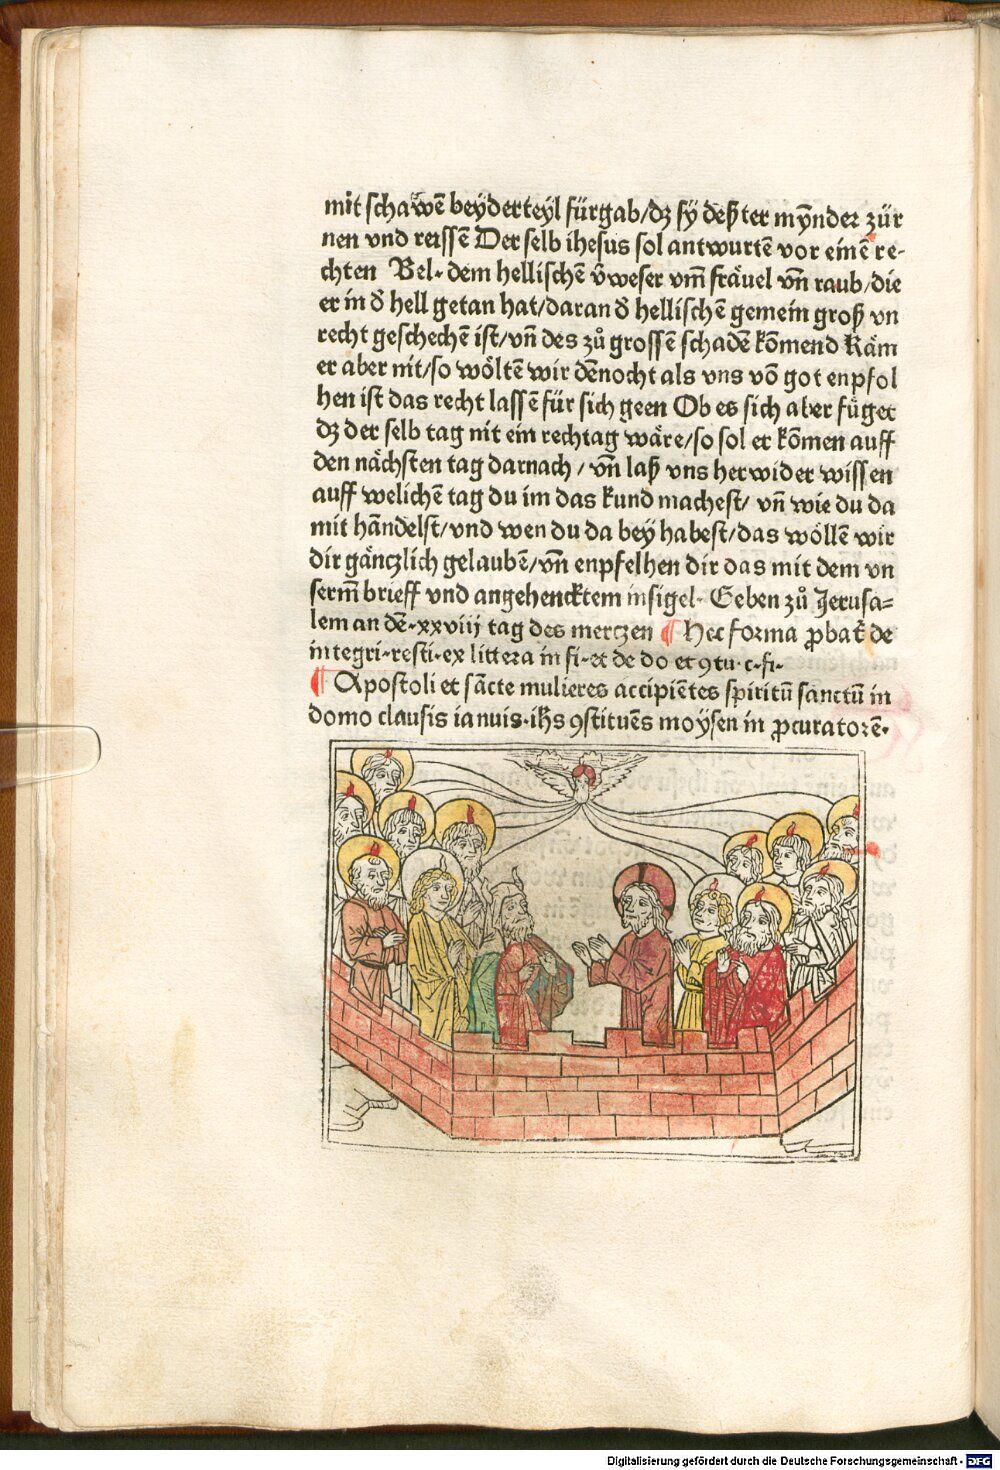 mit schawẽ beÿderteÿl fürgab/dʒ sÿ deßter mÿnder zür
nen vnd reissẽ Der selb ihesus sol antwurtẽ vor einẽ re-
chten Bel. dem hellischẽ v̄weser vm̄ fräuel vn̄ raub/die
er in d̄ hell getan hat/daran d̄ hellischẽ gemein groß vn
recht geschechẽ ist/vn̄ des zů grossẽ schadẽ kõmend Käm
er aber nit/so wöltẽ wir dẽnocht als vns võ got enpfol
hen ist das recht lassẽ für sich geen Ob es sich aber füget
dʒ der selb tag nit ein rechtag wäre/so sol er kõmen auff
den nächsten tag darnach/ vn̄ laß vns herwider wissen
auff welichẽ tag du im das kund machest/ vn̄ wie du da
mit hãndelst/vnd wen du da beÿ habest/das wöllẽ wir
dir gäntzlich gelaubẽ/vn̄ enpfelhen dir das mit dem vn
serm̄ brieff vnd angehencktem insigel. Geben zů Jerusa-
lem an dẽ.xxviij tag des mertzen ¶ Hec forma ꝓbat̄ de
integri.resti.ex littera in fi.et de do et ꝯtu.c.fi.
¶ Apostoli et sãcte mulieres accipiẽtes spiritũ sanctũ in
domo clausis ianuis.ihs̄ ꝯstituẽs moÿsen in ꝓcuratorẽ.
Digitalisierung gefördert durch die Deutsche Forschungsgemeinschaft - DFG